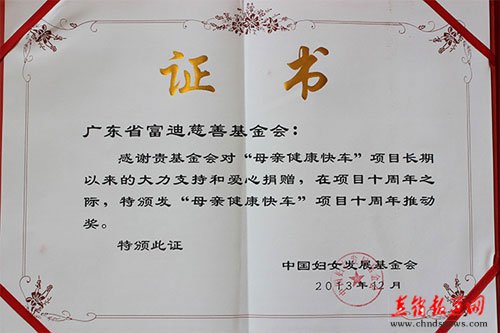 证书
广东省富迪慈善基金会：
感谢贵基金会对“母亲健康快车”项目长期
以来的大力支持和爱心捐赠，在项目十周年之
际，特颁发“母亲健康快车”项目十周年推动
奖。
特颁此证
中国妇女发展基金会
2013年12月
直销报道网
www.chndsnews.com